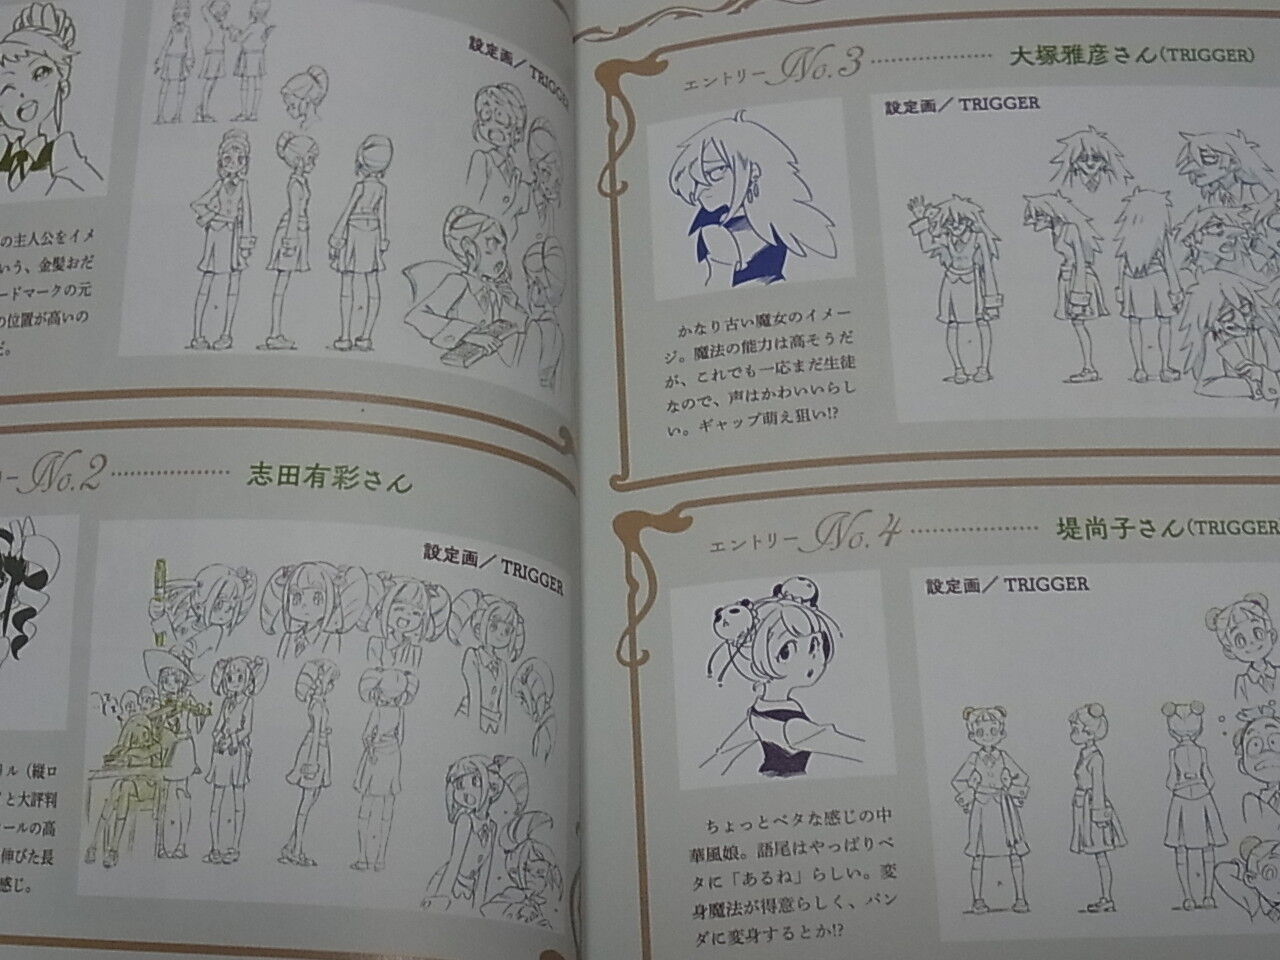 設定画／TRIGGER
の主人公をイメ
いう、金髪おだ
ードマークの元
の位置が高いの
だ。
リー No.2 志田有彩さん
設定画／TRIGGER
リル（縦ロ
と大評判
ールの高
伸びた長
感じ。
エントリー No.3 大塚雅彦さん（TRIGGER）
設定画／TRIGGER
かなり古い魔女のイメー
ジ。魔法の能力は高そうだ
が、これでも一応まだ生徒
なので、声はかわいいらし
い。ギャップ萌え狙い!?
エントリー No.4 堤尚子さん（TRIGGER
設定画／TRIGGER
ちょっとベタな感じの中
華風娘。語尾はやっぱりベ
タに「あるね」らしい。変
身魔法が得意らしく、パン
ダに変身するとか!?